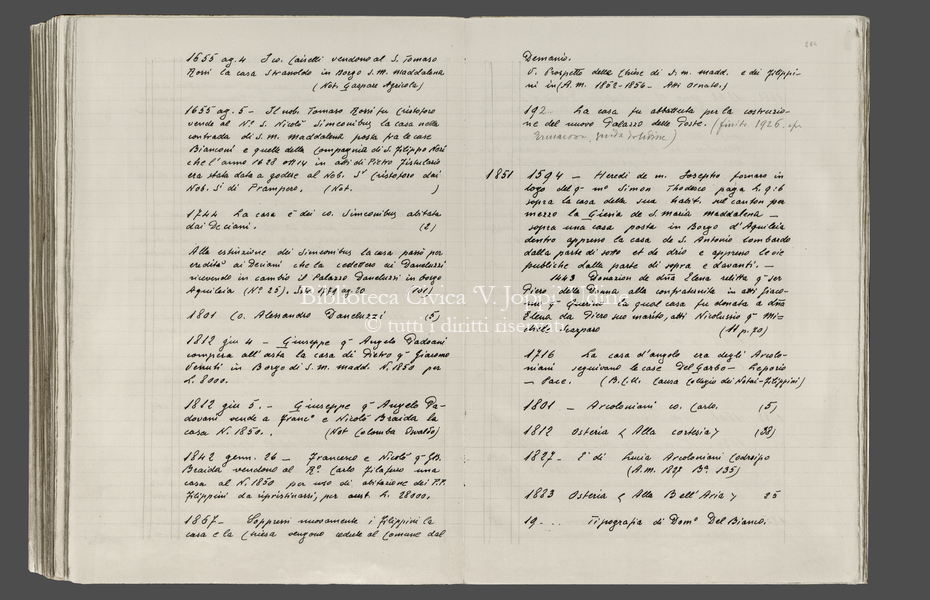 1655 ag. 4 I co. Caiselli vendono al S. Tomaso
Rossi la casa Strassoldo in Borgo S. M. Maddalena
(Not. Gaspare Agricola)
1655 ag. 5 - Il nob. Tomaso Rossi fu Cristoforo
vende al N.º S. Nicolò Simeonibus la casa nella
contrada di S. M. Maddalena posta fra le case
Bianconi e quelle della Compagnia di S. Filippo Neri
che l'anno 1628 ott 14 in atti di Pietro Fistulario
era stata data a godere al Nob. Sr Cristoforo dai
Nob. Si di Prampero. (Not. )
1744 La casa è dei co. Simeonibus abitata
dai Deciani. (2)
Alla estinzione dei Simeonibus la casa passò per
eredità ai Deciani che la cedettero ai Daneluzzi
ricevendo in cambio il Palazzo Daneluzzi in Borgo
Aquileia (Nº 25). 1779 ag. 20 (101)
1801 Co. Alessandro Daneluzzi (5)
1812 giu 4 - Giuseppe q.m Angelo Padoani
compera all'asta la casa di Pietro q.m Giacomo
Venuti in Borgo di S. M. Madd. N. 1850 per
L. 8000.
1812 giu 5. - Giuseppe q.m Angelo Pa-
dovani vende a Franc.º e Nicolò Braida la
casa N. 1850. . (Not Colomba Osvaldo)
1842 genn. 26 - Francesco e Nicolò q.m GB.
Braida vendono al R.º Carlo Filaferro una
casa al N. 1850 per uso di abitazione dei P.P.
Filippini da ripristinarsi, per aust. L. 28000.
1867 - Soppressi nuovamente i Filippini la
casa e la Chiesa vengono cedute al Comune dal
Demanio.
V. Prospetto della Chiesa di S. M. Madd. e dei Filippi-
ni in (A. M. 1852-1856 - Atti Ornato.)
192 La casa fu abbattuta per la costruzio-
ne del nuovo Palazzo delle Poste. (finito 1926
guida)
1851 1594 - Heredi de m. Josepho fornaro in
logo del q. mº Simon Thodesco paga L. 9:6
sopra la casa della sua habit. sul canton per
mezzo la Giesia de S. Maria Maddalena -
sopra una casa posta in Borgo d'Aquileia
dentro appresso la casa de S. Antonio Lombardo
dalla parte di sotto et de drio e appresso le vie
publiche dalla parte di sopra e davanti. -
1443 Donazion de dña Elena relitta q. ser
Piero della Donna alla confraternita in atti Giaco-
mo q. Querini la qual casa fu donata a dña
Elena da Piero suo marito, atti Nicolussio q. Mi-
chele Scarparo (A p. 70)
1716 La casa d'angolo era degli Arcolo-
niani seguivano le case Del Garbo - Leporio
- Pace. (B.C.U. Causa Collegio dei Notai-Filippini)
1801 - Arcoloniani co. Carlo. (5)
1812 Osteria < Alla cortesia > (38)
1827 - E' di Lucia Arcoloniani Codroipo
(A.M. 1827 Bª 135)
1883 Osteria < Alla Bell'Aria > 25
19 . . . Tipografia di Domº Del Bianco.
Biblioteca Civica 'V. Joppi' Udine
© tutti i diritti riservati